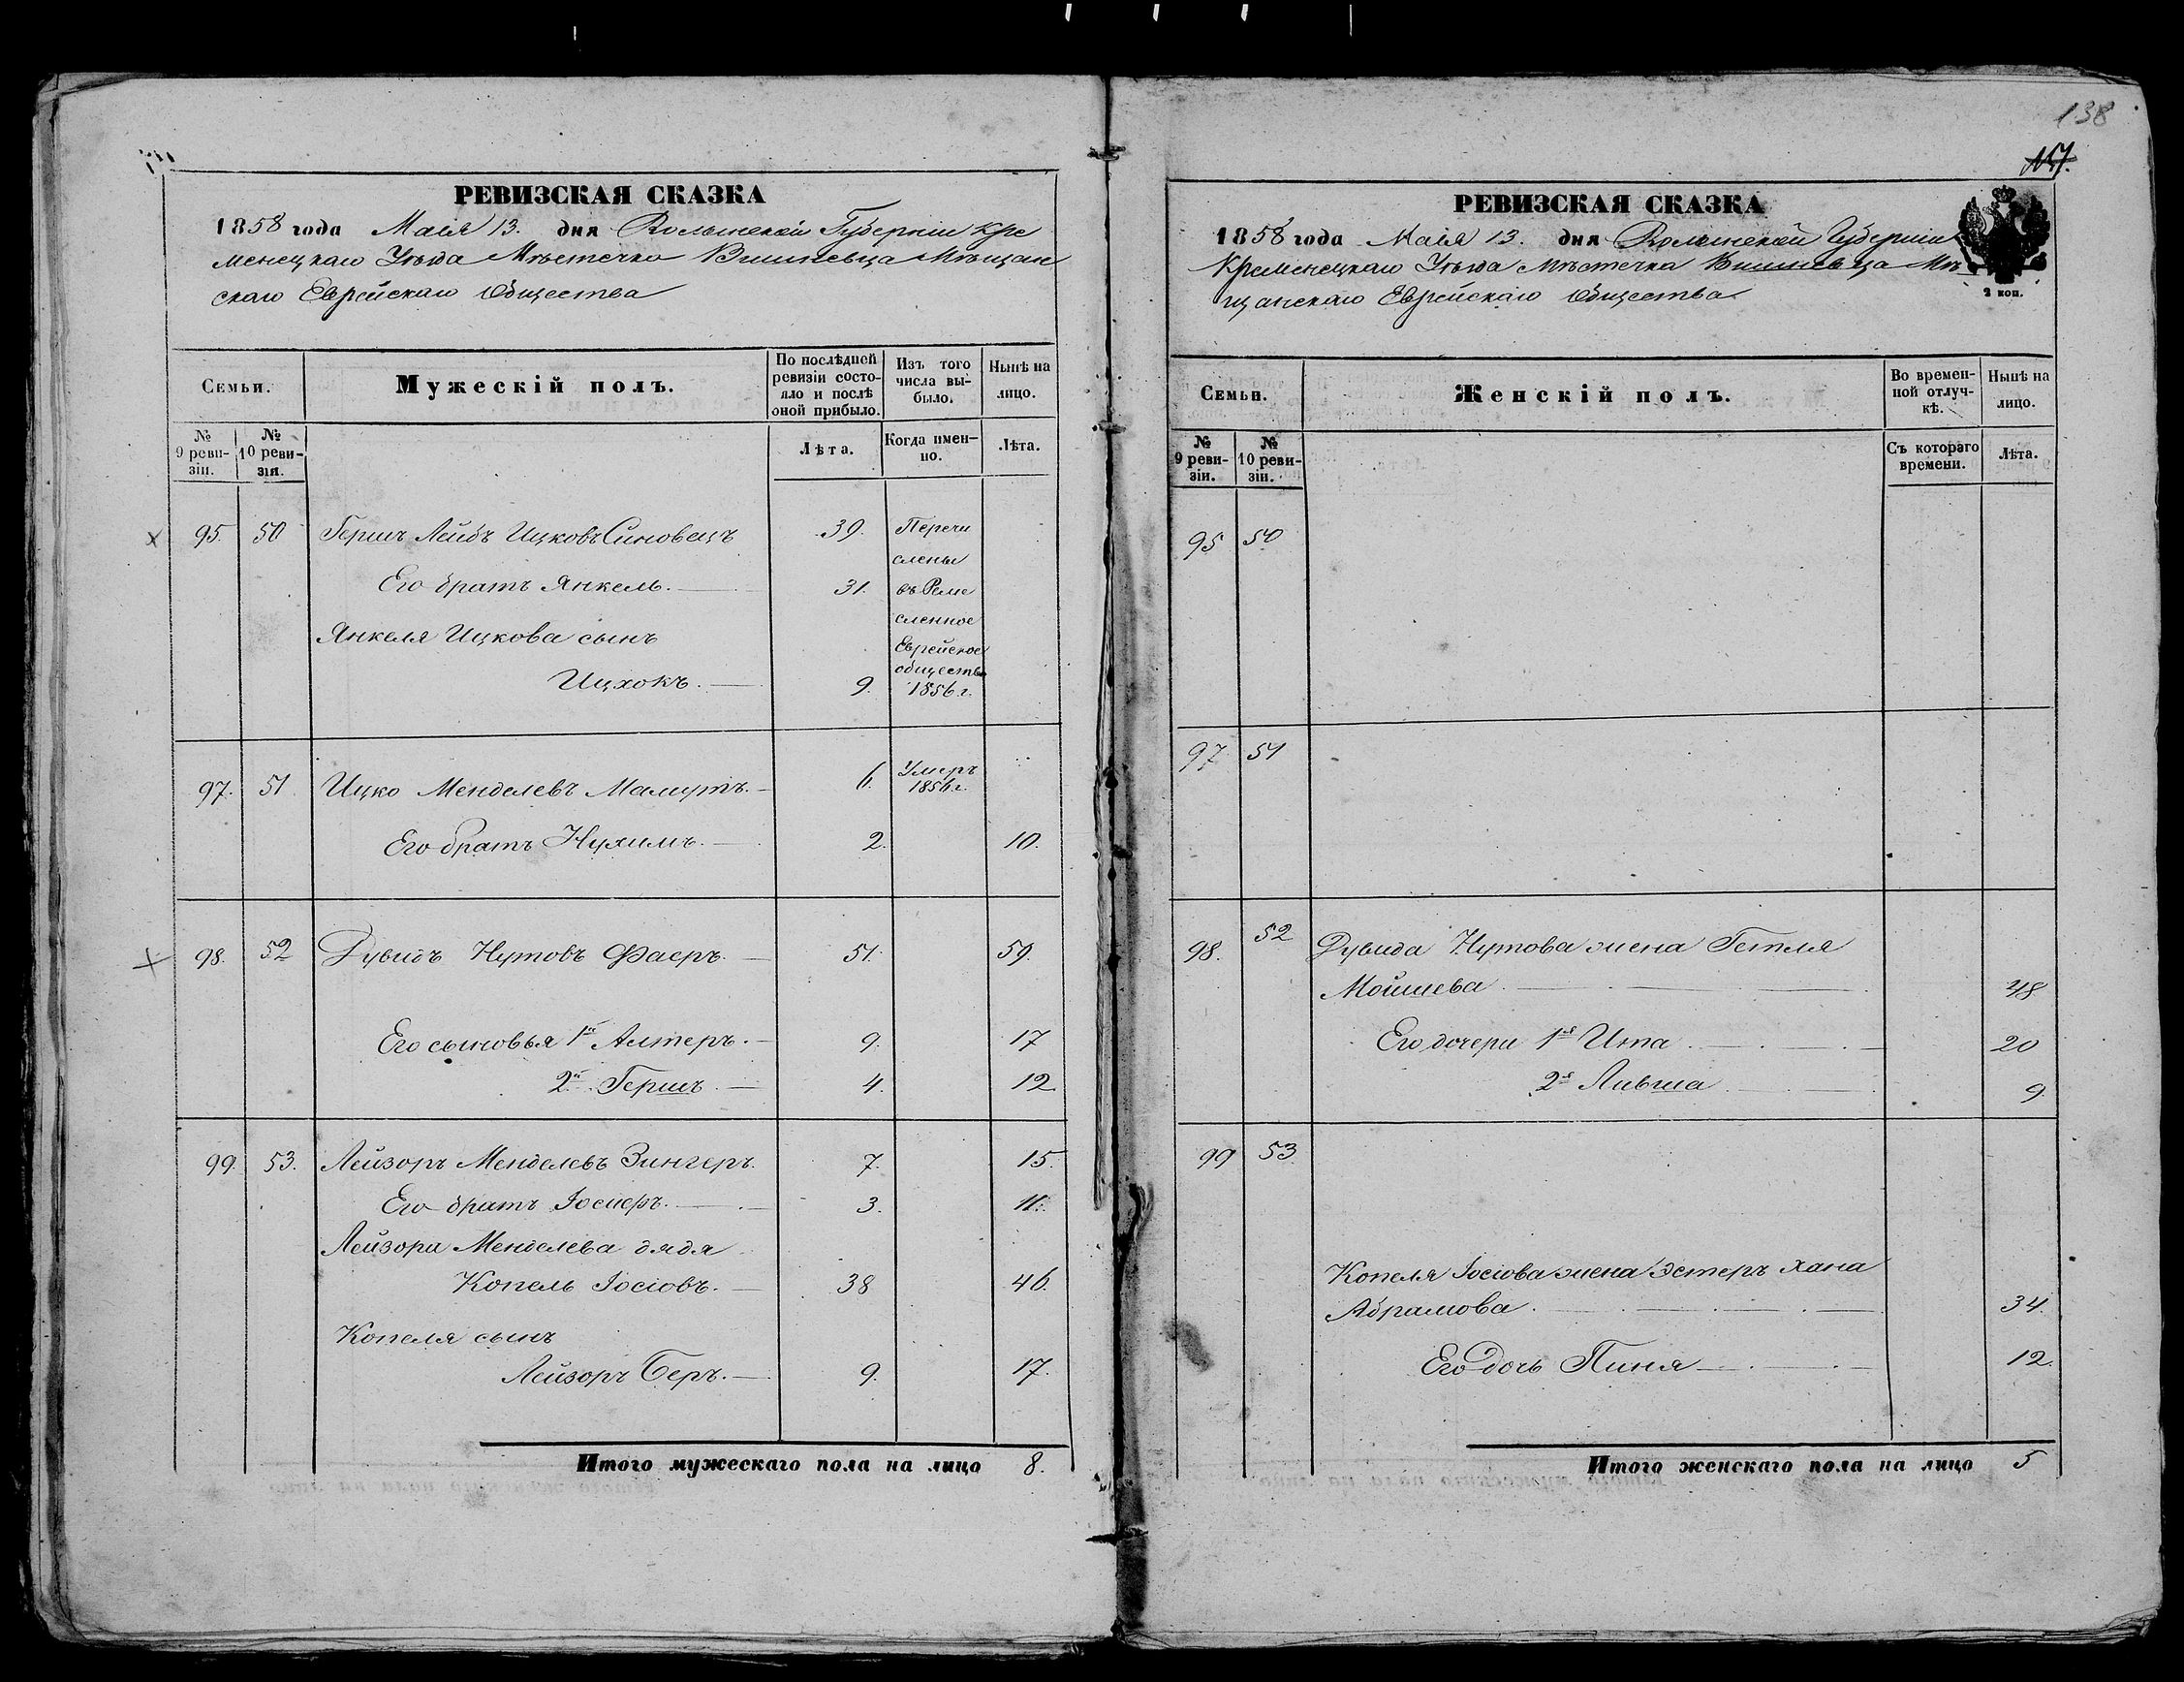 138
РЕВИЗСКАЯ СКАЗКА
1858 года Маія 13. дня Волынской Губерніи Кре
менецкаго Уѣзда Мѣстечка Вишневца Мѣщан
скаго Еврейскаго Общества
Семьи.
Мужескій полъ.
По послѣдней
ревизіи состо-
яло и послѣ
оной прибыло.
Изъ того
числа вы-
было.
Нынѣ на
лицо.
№
9 реви-
зіи.
№
10 реви-
зіи.
Лѣта.
Когда имен-
но.
Лѣта.
95. 50 Гершъ Лейбъ Ицковъ Синовецъ 39. Перечи
слены
Его братъ Янкель. 31. въ Реме
сленное
Янкеля Ицкова сынъ Еврейское
общество
Ицхокъ. 9. 1856 г.
97. 51 Ицко Менделевъ Маламутъ. 6. Умеръ
1856 г.
Его братъ Нухимъ. 2. 10.
98. 52 Дувидъ Нутовъ Фаеръ. 51. 59.
Его сыновья 1й Алтеръ. 9. 17
2й Гершъ. 4. 12.
99. 53. Лейзоръ Менделевъ Зингеръ. 7. 15.
Его братъ Іосиеръ. 3. 11.
Лейзора Менделева дядя
Копель Іосіовъ. 38 46.
Копеля сынъ
Лейзоръ Беръ. 9. 17.
Итого мужескаго пола на лицо 8.
РЕВИЗСКАЯ СКАЗКА
1858 года Маія 13. дня Волынской Губерніи
Кременецкаго Уѣзда Мѣстечка Вишневца Мѣ
щанскаго Еврейскаго Общества
2 коп.
Семьи.
Женскій полъ.
Во времен-
ной отлуч-
кѣ.
Нынѣ на
лицо.
№
9 реви-
зіи.
№
10 реви-
зіи.
Съ котораго
времени.
Лѣта.
95 50
97. 51
98. 52 Дувида Нутова жена Гетля
Мойшева 48
Его дочери 1я Ита 20
2я Лившa 9.
99 53.
Копеля Іосіова жена Эстеръ Хана
Абрамова. 34.
Его дочь Пиня 12.
Итого женскаго пола на лицо 5